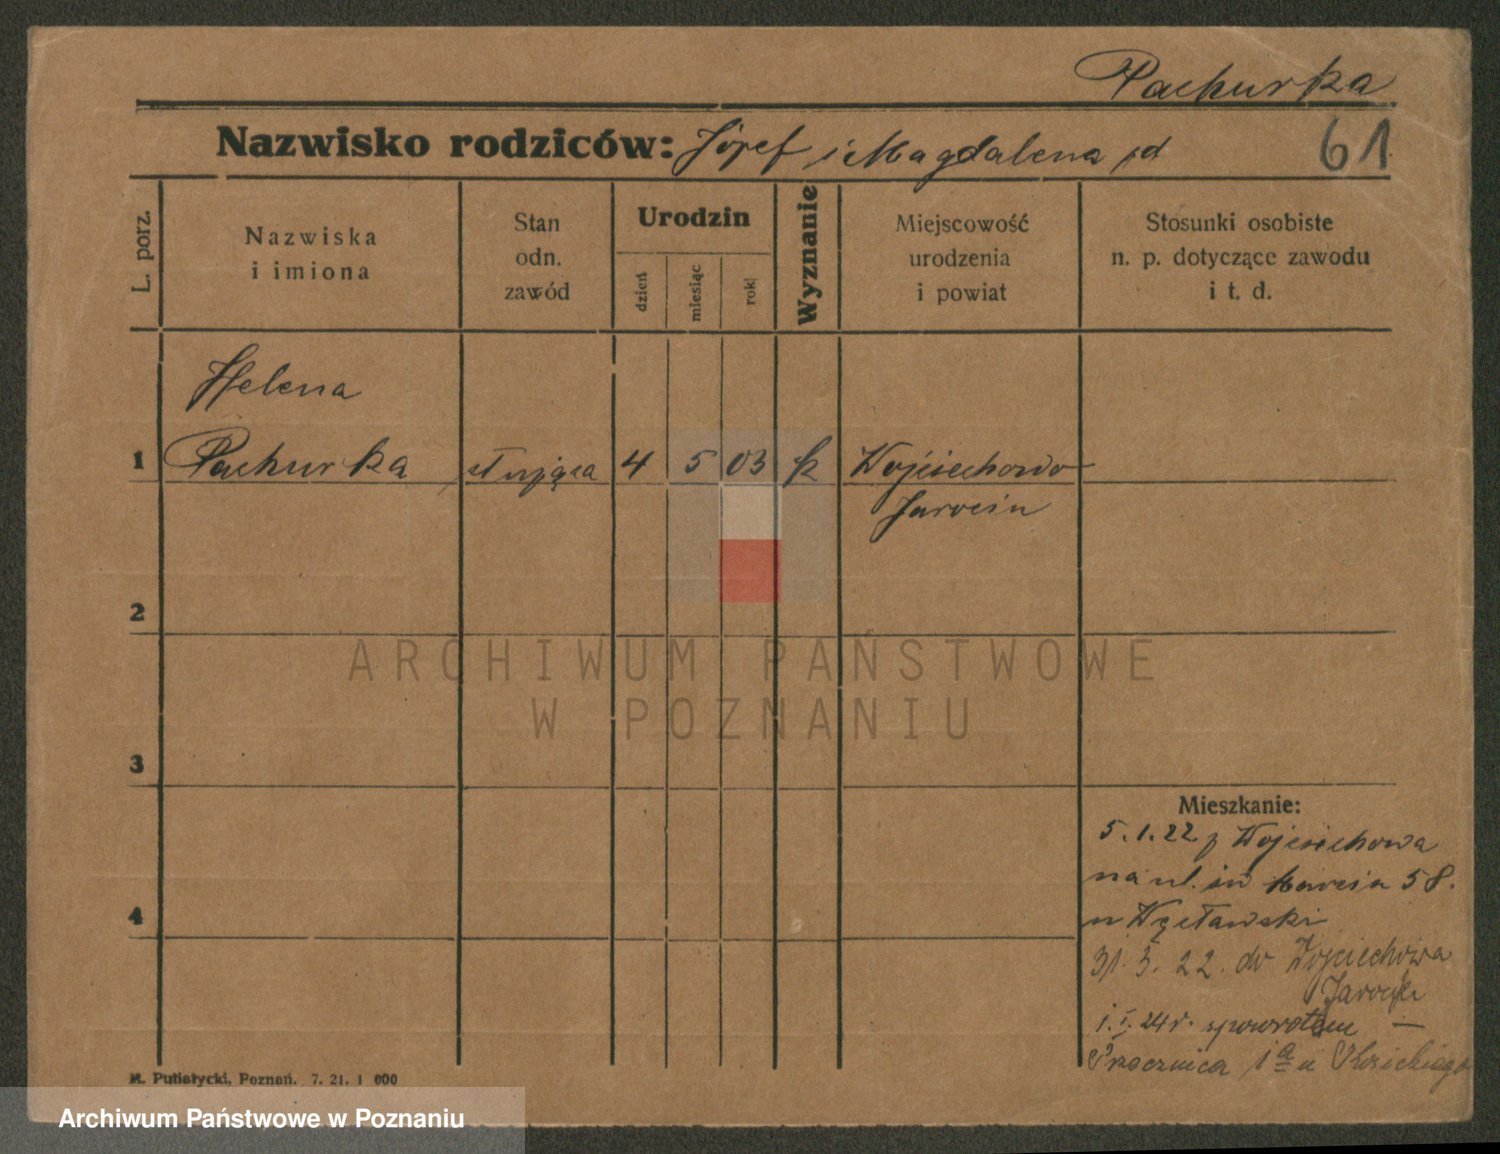 Pachurka
Nazwisko rodziców: Józef i Magdalena jd
61
L. porz.
Nazwiska
i imiona
Stan
odn.
zawód
Urodzin
dzień
miesiąc
rok
Wyznanie
Miejscowość
urodzenia
i powiat
Stosunki osobiste
n. p. dotyczące zawodu
i t. d.
Helena
1 Pachurka służąca 4 5 03 k Wojciechowo
Jarocin
2
ARCHIWUM PAŃSTWOWE
W POZNANIU
3
Mieszkanie:
5.1.22 z Wojciechowa
na ul. św Marcin 58.
u Węcławski
31. 3. 22. do Wojciechowa
4
1. I. 24 r. spowrotem —
1 a u
M. Putiatycki, Poznań. 7. 21. 1 000
Archiwum Państwowe w Poznaniu